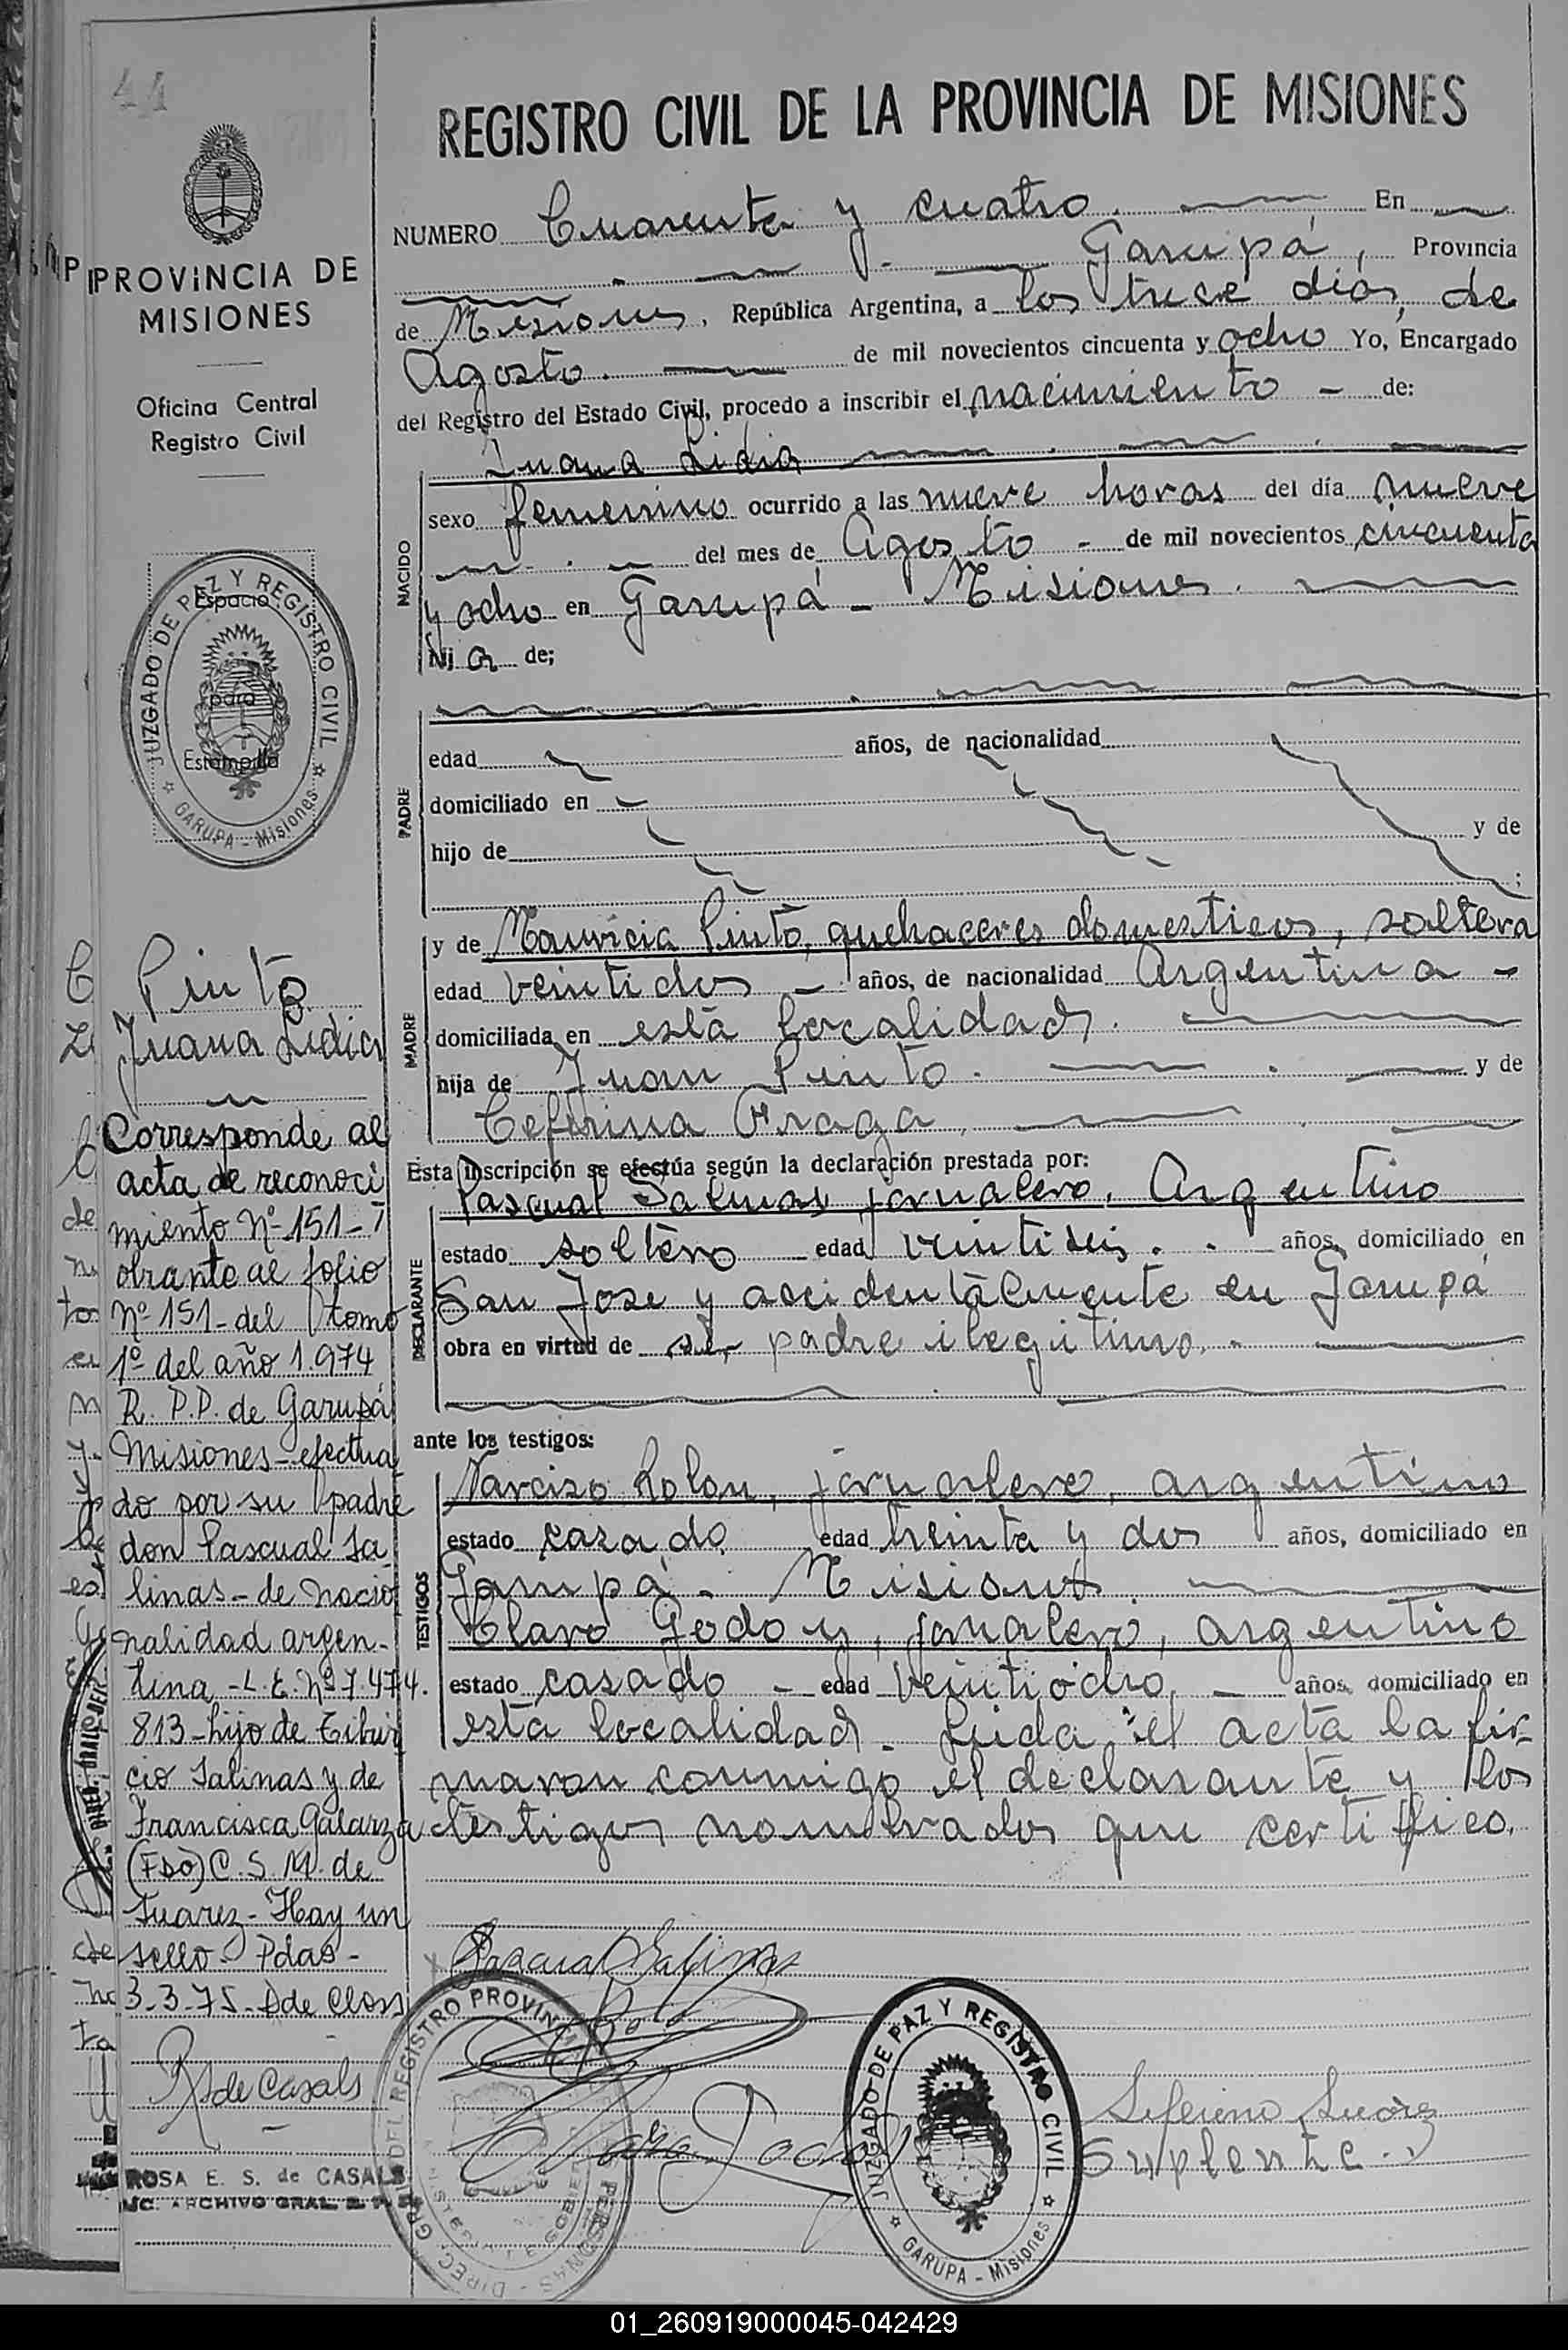 44
REGISTRO CIVIL DE LA PROVINCIA DE MISIONES
PROVINCIA DE
MISIONES
Oficina Central
Registro Civil
NUMERO Cuarenta y cuatro. En
Garupá, Provincia
de Misiones, República Argentina, a los trece dias, de
Agosto. de mil novecientos cincuenta y ocho Yo, Encargado
del Registro del Estado Civil, procedo a inscribir el nacimiento - de:
Juana Lidia
NACIDO
sexo femenino ocurrido a las nueve horas del día nueve
del mes de Agosto - de mil novecientos cincuenta
y ocho en Garupá - Misiones.
Hij a de;
PADRE
edad años, de nacionalidad
domiciliado en
hijo de y de
;
MADRE
y de Mauricia Pinto, quehaceres domesticos, soltera
edad veintidos - años, de nacionalidad Argentina -
domiciliada en está localidad.
hija de Juan Pinto. y de
Ceferina Fraga.
Esta inscripción se efectúa según la declaración prestada por:
DECLARANTE
Pascual Salinas, jornalero, Argentino
estado soltero edad veintiseis. años, domiciliado en
San Jose y accidentalmente en Garupá
obra en virtud de ser padre ilegitimo.
ante los testigos:
TESTIGOS
Narciso Rolon, jornalero, argentino
estado casado edad treinta y dos años, domiciliado en
Garupá. Misiones
Claro Godoy, jornalero, argentino
estado casado - edad veintiocho, años, domiciliado en
está localidad. Leida el acta la fir-
maron conmigo el declarante y los
testigos nombrados que certifico.
Pascual Salinas
Claro Godoy
Suplente
JUZGADO DE PAZ Y REGISTRO CIVIL
GARUPA - Misiones
Espacio
para
Estampilla
JUZGADO DE PAZ Y REGISTRO CIVIL
GARUPA - Misiones
Pinto
Juana Lidia
Corresponde al
acta de reconoci
miento Nº 151-I
obrante al folio
Nº 151- del tomo
1º del año 1.974
R. P.P. de Garupá
Misiones- efectua
do por su padre
don Pascual Sa
linas- de nacio
nalidad argen-
tina -L.E. Nº 7.474.
813- hijo de Tibur
cio Salinas y de
Francisca Galarza
(Fdo) C. S. M. de
Suarez- Hay un
sello- Pdas-
3-3-75-
R S de Casals
ROSA E. S. de CASALS
01_260919000045-042429